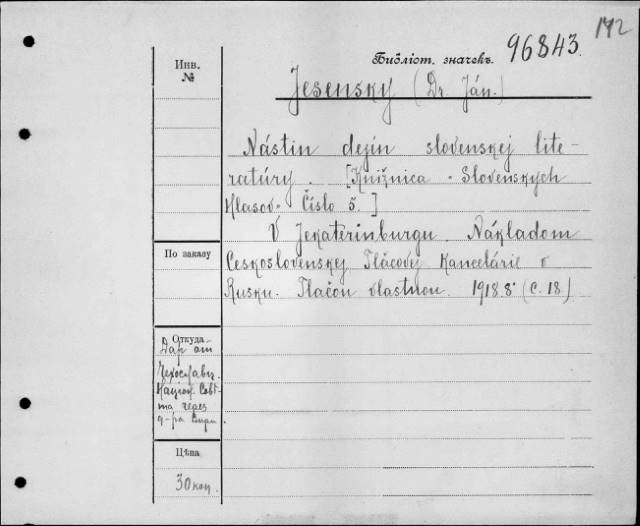 172
Библіот. значекъ. 96843.
Инв.
№
Jesenský (Dr. Ján.)
Nástin dejín slovenskej lite-
ratúry. [Knižnica "Slovenských
Hlasov" Číslo 5.]
V Jekaterinburgu. Nákladom
Československej Tlačovej Kancelárie v
Rusku. Tlačou vlastnou. 1918 8° (С. 18.)
По заказу
Откуда
Дар от
Чехославц.
Націон. Совѣ-
та через
д-ра
Цѣна
30 коп.